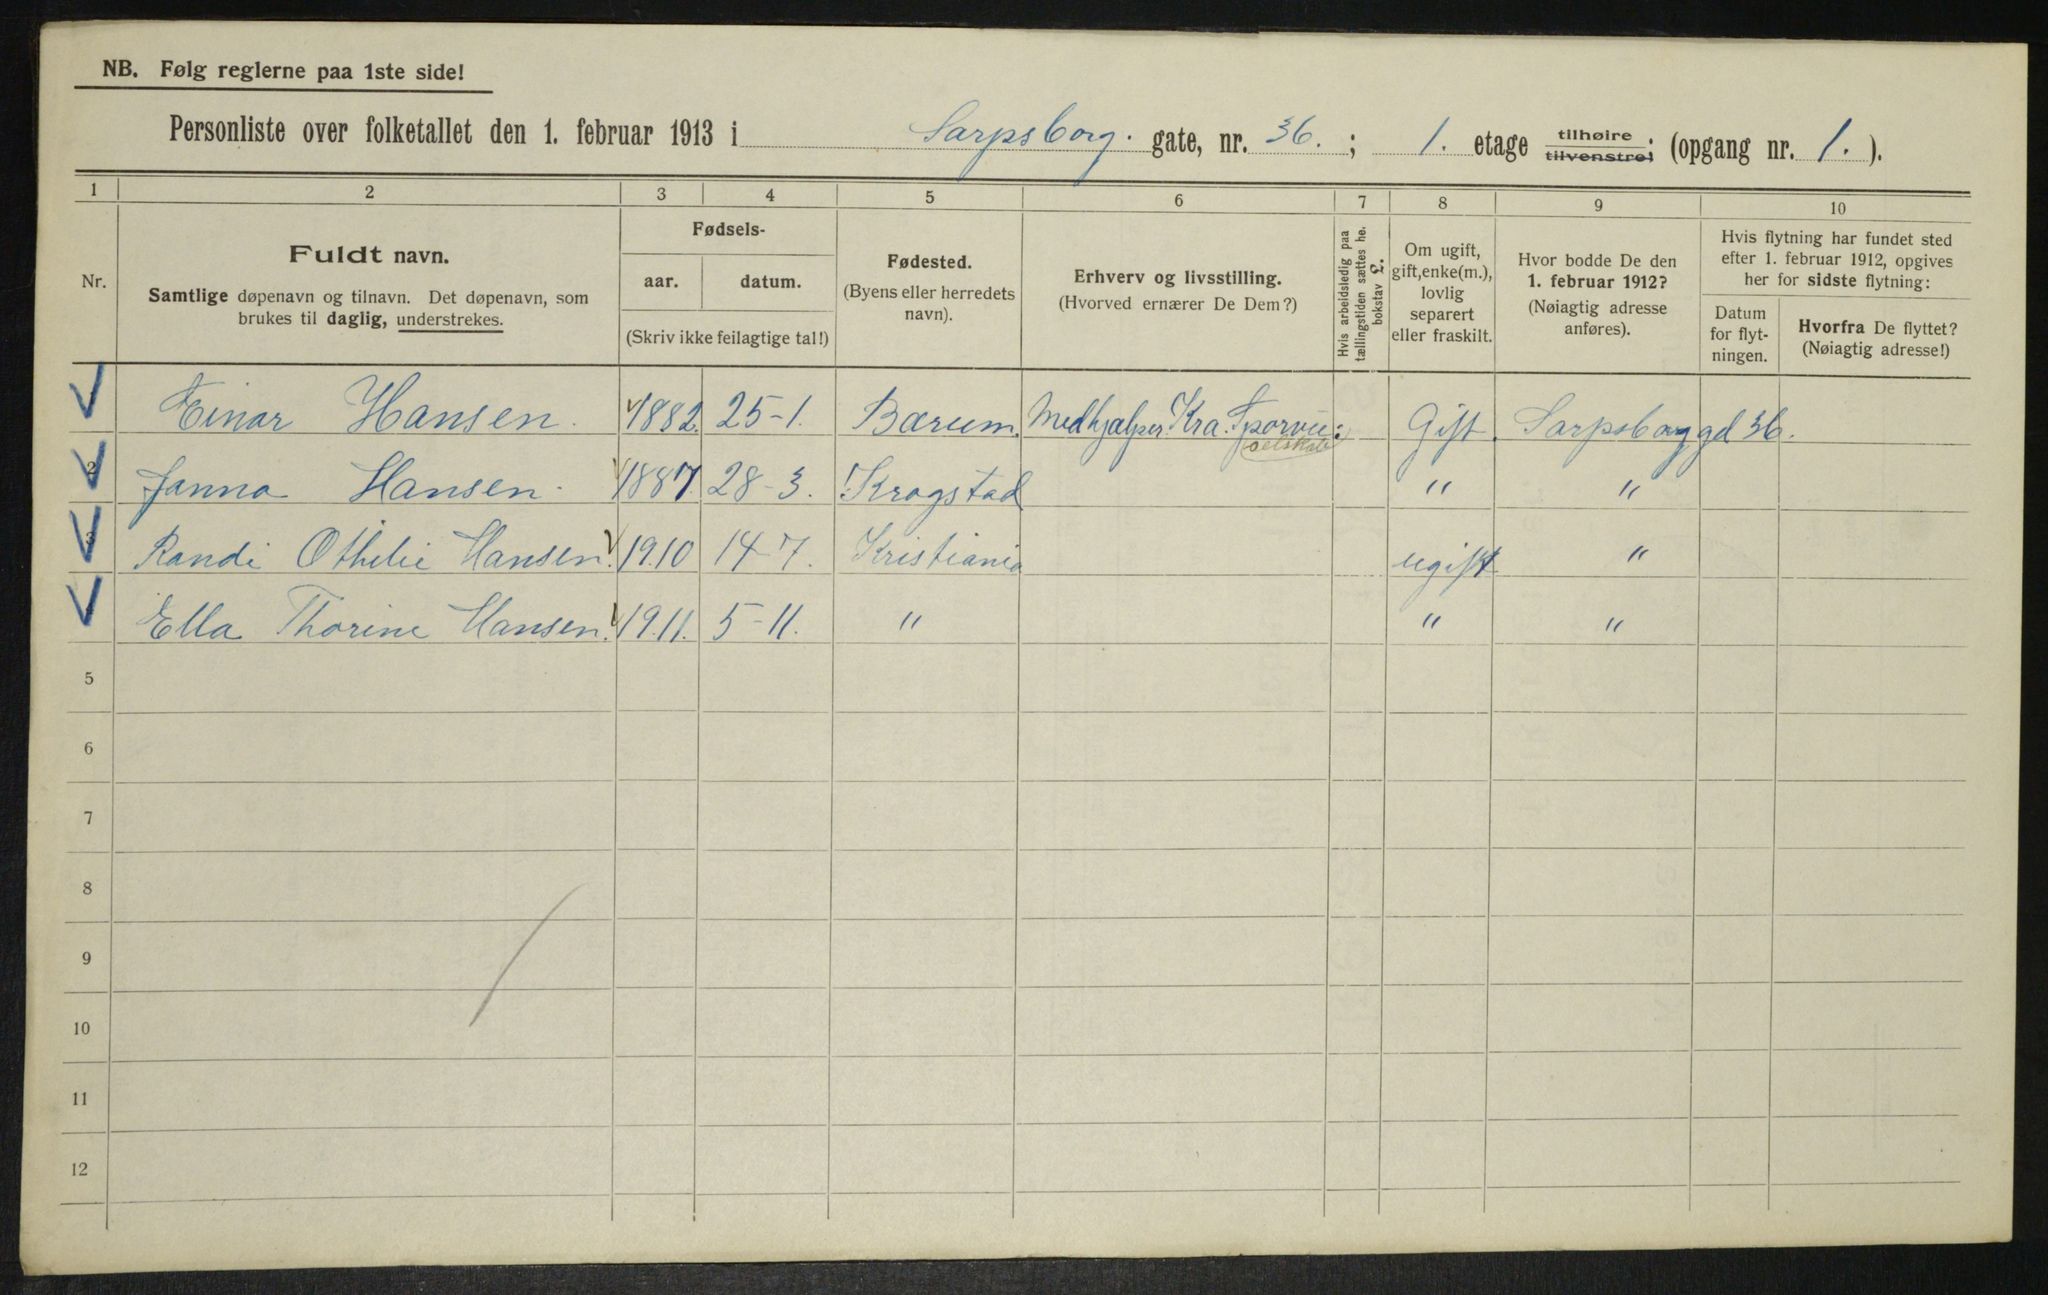 NB. Følg reglerne paa 1ste side!
Personliste over folketallet den 1. februar 1913 i Sarpsborg. gate, nr. 36. ; 1. etage tilhøire tilvenstre; (opgang nr. 1. ).
1 2 3 4 5 6 7 8 9 10
Nr.
Fuldt navn.
Samtlige døpenavn og tilnavn. Det døpenavn, som
brukes til daglig, understrekes.
Fødsels-
aar. datum.
(Skriv ikke feilagtige tal!)
Fødested.
(Byens eller herredets
navn).
Erhverv og livsstilling.
(Hvorved ernærer De Dem?)
Hvis arbeidsledig paa
tællingstiden sættes he.
bokstav L.
Om ugift,
gift, enke(m.),
lovlig
separert
eller fraskilt.
Hvor bodde De den
1. februar 1912?
(Nøiagtig adresse
anføres).
Hvis flytning har fundet sted
efter 1. februar 1912, opgives
her for sidste flytning:
Datum
for flyt-
ningen.
Hvorfra De flyttet?
(Nøiagtig adresse!)
Einar Hansen. 1882. 25-1. Bærum. Medhjælper. Kra. Sporvei: Gift. Sarpsborg gd 36.
selskab
2 Janna Hansen. 1887. 28-3. Krogstad " "
3 Randi Othilie Hansen. 1910 14-7. Kristiania ugift "
Ella Thorine Hansen. 1911. 5-11. " " "
5
6
7
8
9
10
11
12